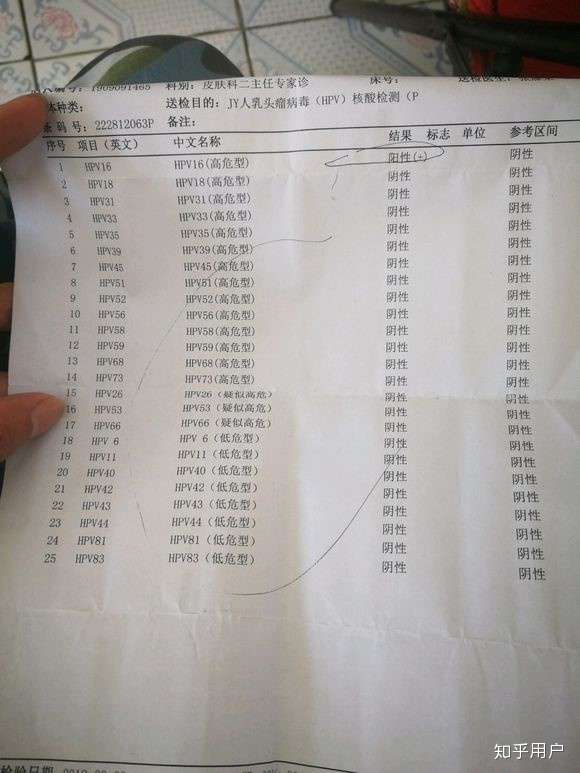 号: 1909091465 科别: 皮肤科二主任专家诊 床号: 送检医生:
体种类: 送检目的: JY人乳头瘤病毒（HPV）核酸检测（P
条码号: 222812063P 备注:
序号 项目（英文） 中文名称 结果 标志 单位 参考区间
1 HPV16 HPV16(高危型) 阳性(+) 阴性
2 HPV18 HPV18(高危型) 阴性 阴性
3 HPV31 HPV31(高危型) 阴性 阴性
4 HPV33 HPV33(高危型) 阴性 阴性
5 HPV35 HPV35(高危型) 阴性 阴性
6 HPV39 HPV39(高危型) 阴性 阴性
7 HPV45 HPV45(高危型) 阴性 阴性
8 HPV51 HPV51(高危型) 阴性 阴性
9 HPV52 HPV52(高危型) 阴性 阴性
10 HPV56 HPV56(高危型) 阴性 阴性
11 HPV58 HPV58(高危型) 阴性 阴性
12 HPV59 HPV59(高危型) 阴性 阴性
13 HPV68 HPV68(高危型) 阴性 阴性
14 HPV73 HPV73(高危型) 阴性 阴性
15 HPV26 HPV26（疑似高危） 阴性 阴性
16 HPV53 HPV53（疑似高危） 阴性 阴性
17 HPV66 HPV66（疑似高危） 阴性 阴性
18 HPV 6 HPV 6（低危型） 阴性 阴性
19 HPV11 HPV11（低危型） 阴性 阴性
20 HPV40 HPV40（低危型） 阴性 阴性
21 HPV42 HPV42（低危型） 阴性 阴性
22 HPV43 HPV43（低危型） 阴性 阴性
23 HPV44 HPV44（低危型） 阴性 阴性
24 HPV81 HPV81（低危型） 阴性 阴性
25 HPV83 HPV83（低危型） 阴性 阴性
检验日期
知乎用户